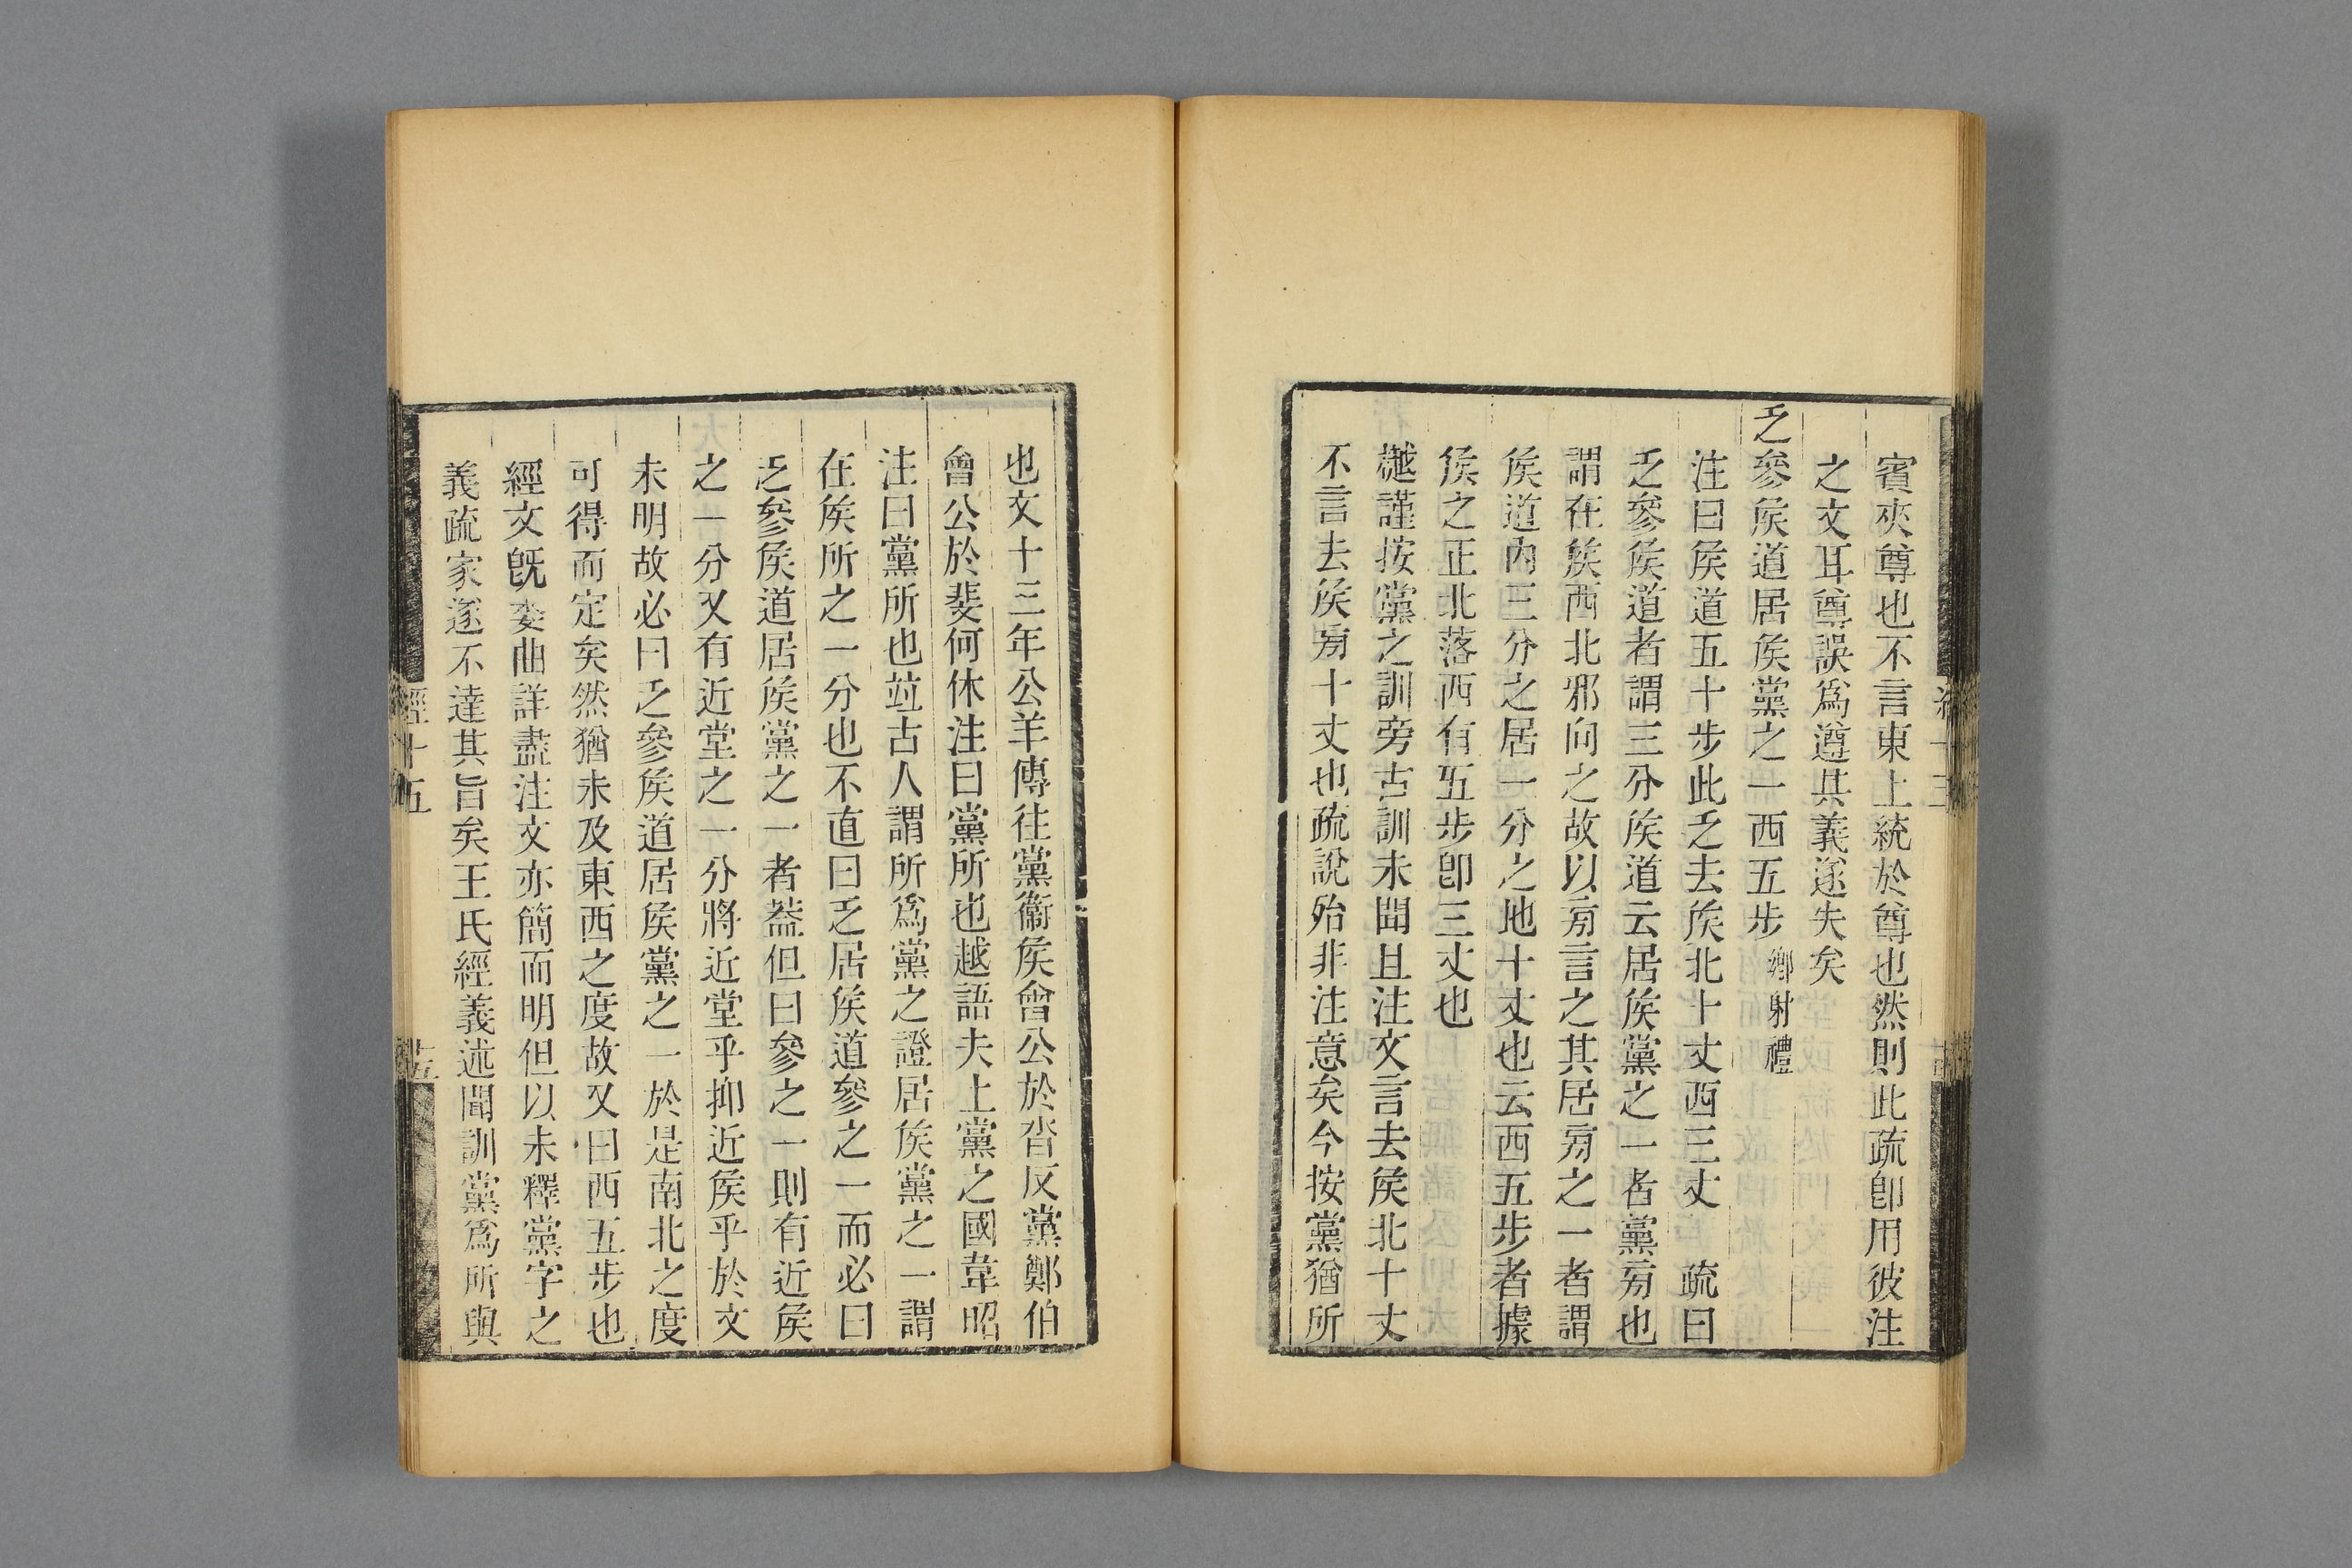 賓夾尊也不言東上統於尊也然則此疏卽用彼注
之文耳尊誤爲遵其義遂失矣
乏參矦道居矦黨之一西五步鄉射禮
注曰矦道五十步此乏去矦北十丈西三丈　疏曰
乏參矦道者謂三分矦道云居矦黨之一者黨旁也
謂在矦西北邪向之故以旁言之其居旁之一者謂
矦道內三分之居一分之地十丈也云西五步者據
矦之正北落西有五步卽三丈也
樾謹按黨之訓旁古訓未聞且注文言去矦北十丈
不言去矦旁十丈也疏說殆非注意矣今按黨猶所
也文十三年公羊傳往黨衞矦會公於沓反黨鄭伯
會公於斐何休注曰黨所也越語夫上黨之國韋昭
注曰黨所也竝古人謂所爲黨之證居矦黨之一謂
在矦所之一分也不直曰乏居矦道參之一而必曰
乏參矦道居矦黨之一者葢但曰參之一則有近矦
之一分又有近堂之一分將近堂乎抑近矦乎於文
未明故必曰乏參矦道居矦黨之一於是南北之度
可得而定矣然猶未及東西之度故又曰西五步也
經文旣委曲詳盡注文亦簡而明但以未釋黨字之
義疏家遂不達其旨矣王氏經義述聞訓黨爲所與
經十五
十五